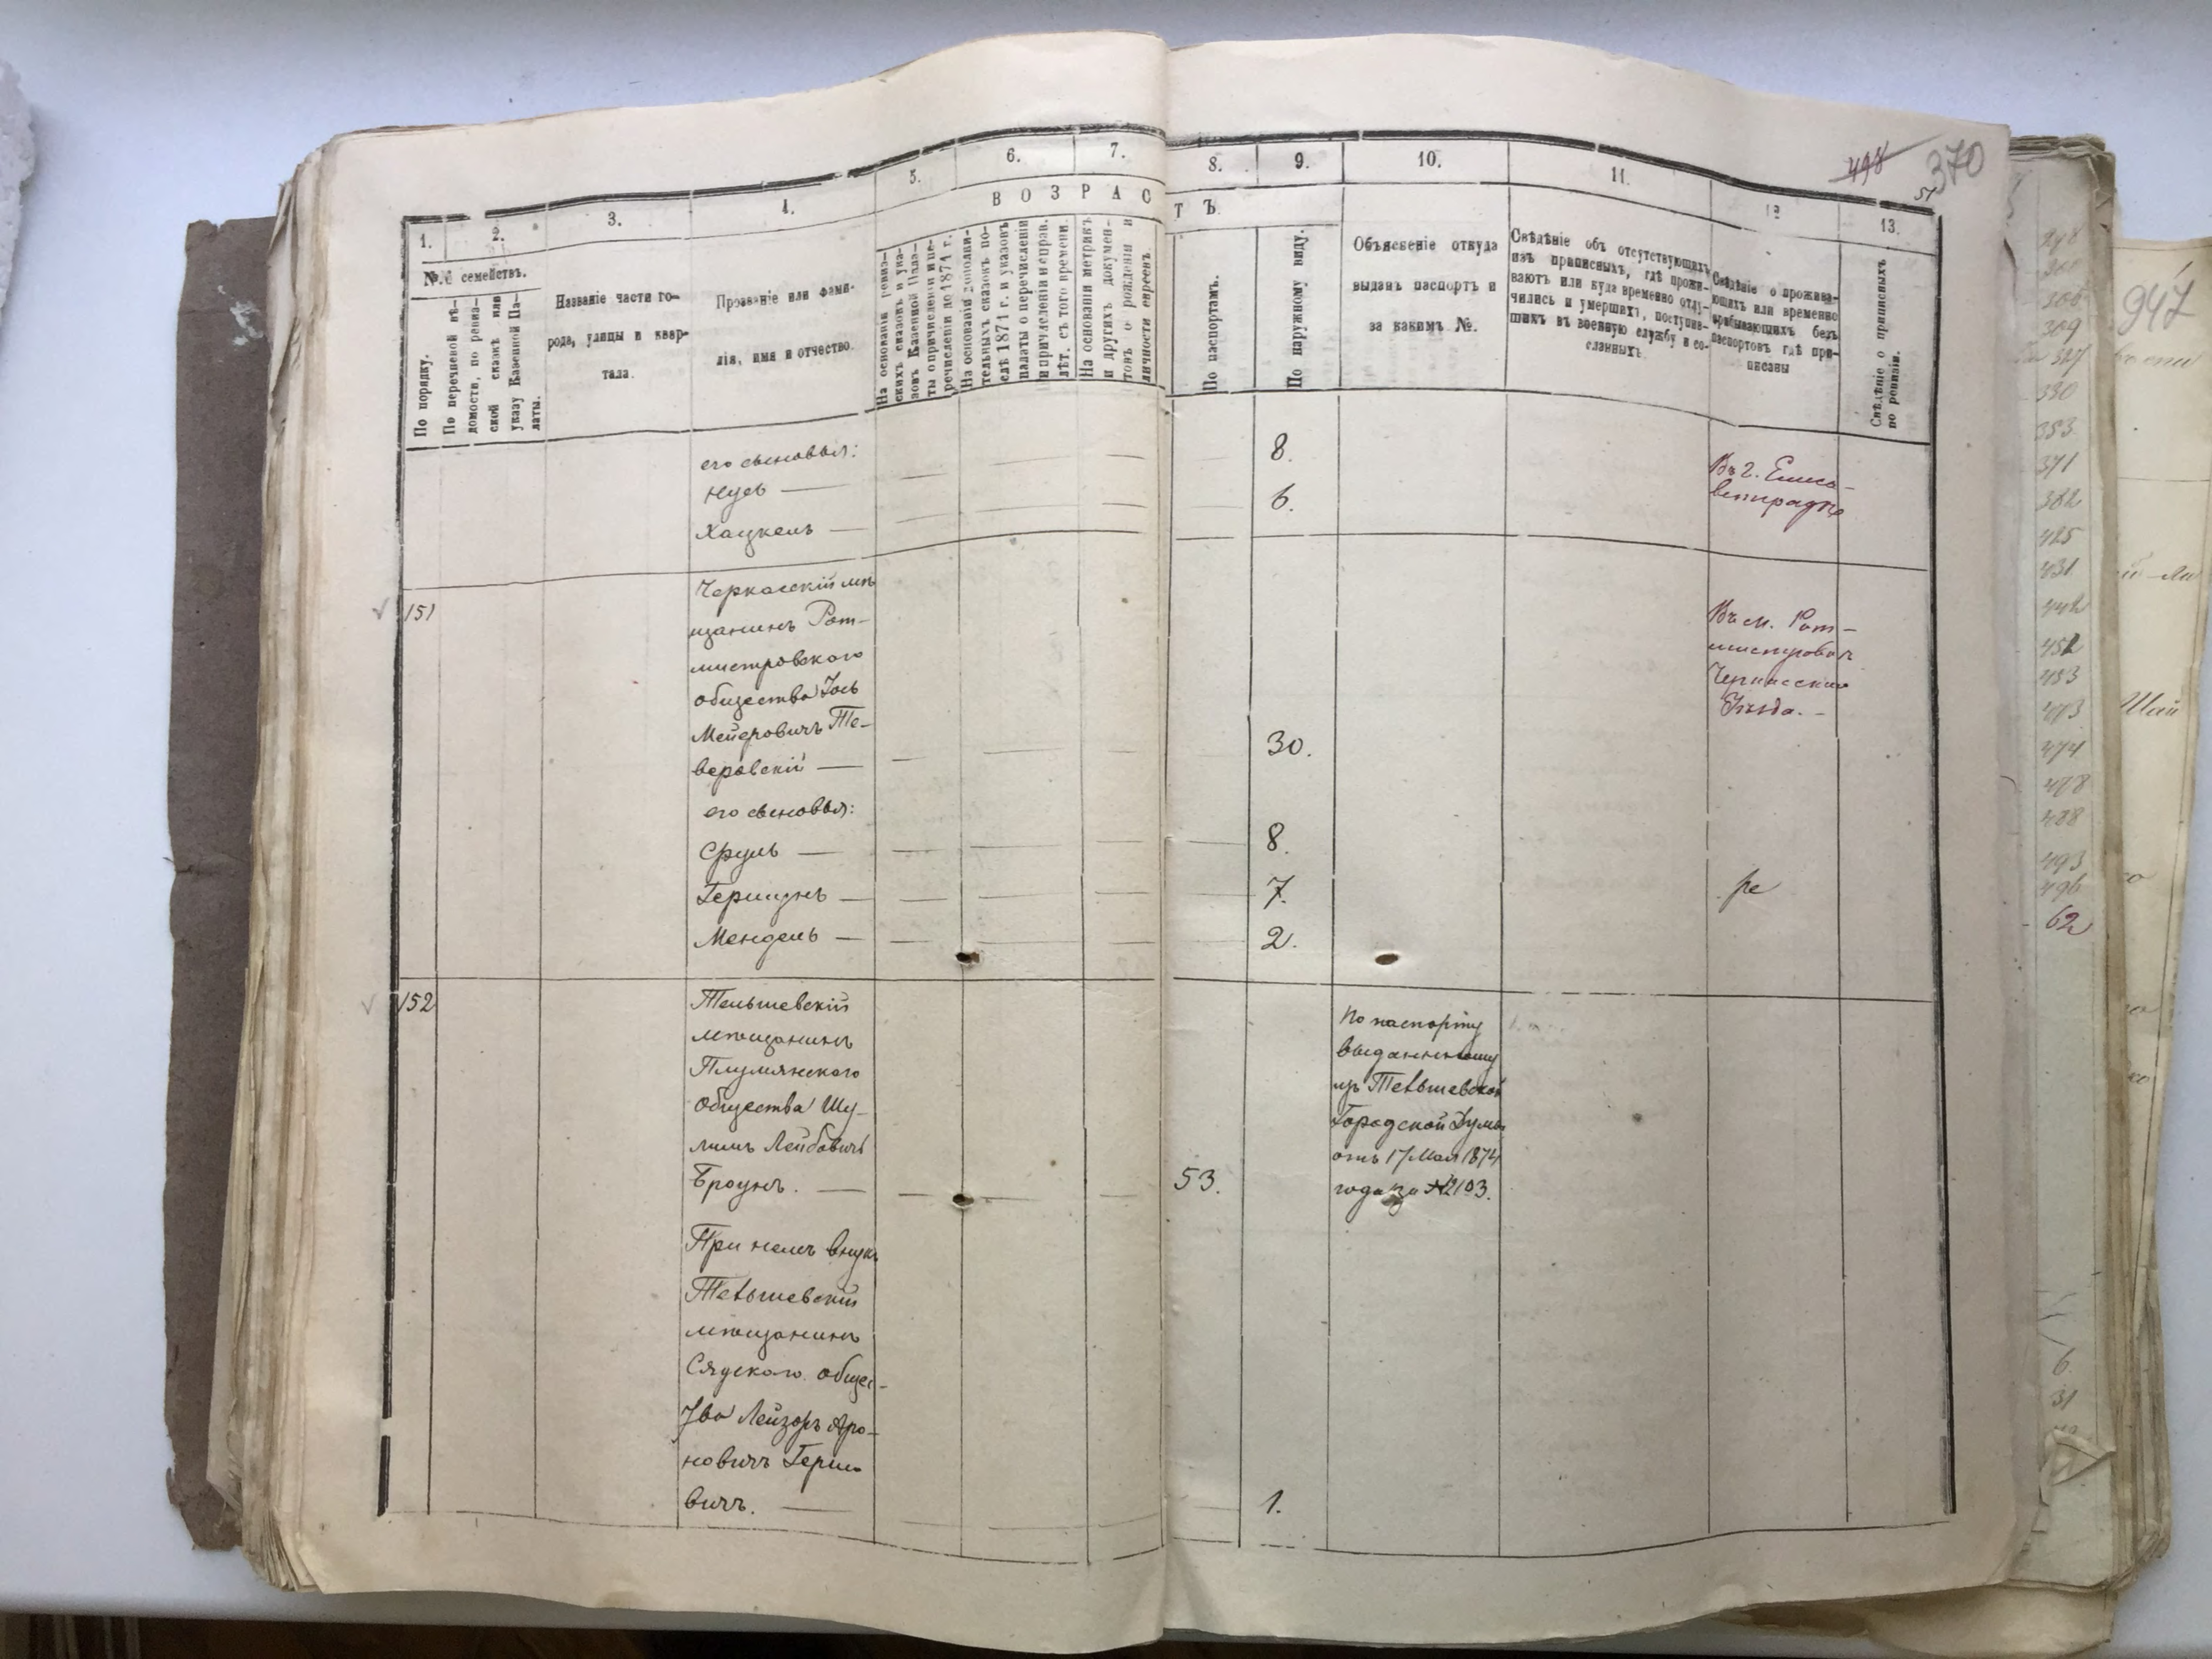 498
51
370
1.
2.
3.
4.
5.
6.
7.
8.
9.
10.
11.
12
13.
В О З Р А С Т Ъ
№№ семействъ.
По порядку.
По перечневой вѣ-
домости, по ревиз-
ской сказкѣ или
указу Казенной Па-
латы.
Названіе части го-
рода, улицы и квар-
тала.
Прозваніе или фами-
лія, имя и отчество.
На основаніи ревиз-
скихъ сказокъ и ука-
зовъ Казенной Пала-
ты о причисленіи и пе-
речисленіи до 1874 г.
На основаніи дополни-
тельныхъ сказокъ по-
слѣ 1874 г. и указовъ
палаты о перечисленіи
и причисленіи и справ.
лѣт. съ того времени.
На основаніи метрикъ
и другихъ докумен-
товъ о рожденіи и
личности евреевъ.
По паспортамъ.
По наружному виду.
Объясненіе откуда
выданъ паспортъ и
за какимъ №.
Свѣдѣніе объ отсутствующихъ
изъ приписныхъ, гдѣ прожи-
ваютъ или куда временно отлу-
чились и умершихъ, поступив-
шихъ въ военную службу и со-
сланныхъ.
Свѣдѣніе о прожива-
ющихъ или временно
пребывающихъ безъ
паспортовъ гдѣ при-
писаны
Свѣдѣніе о приписныхъ
по ревизіи.
его сыновья:
Нусъ — 8.
Хацкель — 6.
Въ г. Елиса-
ветградѣ
151
Черкасскій мѣ
щанинъ Рот-
мистровского
общества Іось
Мейеровичъ Те-
веровскій — 30.
Въ м. Рот-
мистровкѣ
Черкасскаго
Уѣзда. -
его сыновья:
Сруль — 8.
Гершунъ — 7.
Мендель — 2.
152
Тельшевскій
мѣщанинъ
Плунянского
Общества Шу-
лимъ Лейбовичъ
Броунъ. — 53.
По паспорту
выданному
изъ Тельшевской
Городской Думы
отъ 17 Мая 1874
года за №2103.
При немъ внукъ
Тельшевскій
мѣщанинъ
Сядского общес-
тва Лейзоръ Аро-
новичъ Герше
вичъ. — 1.
330
353
371
382
425
431
442
452
453
473
474
478
488
493
496
62
6.
31
947